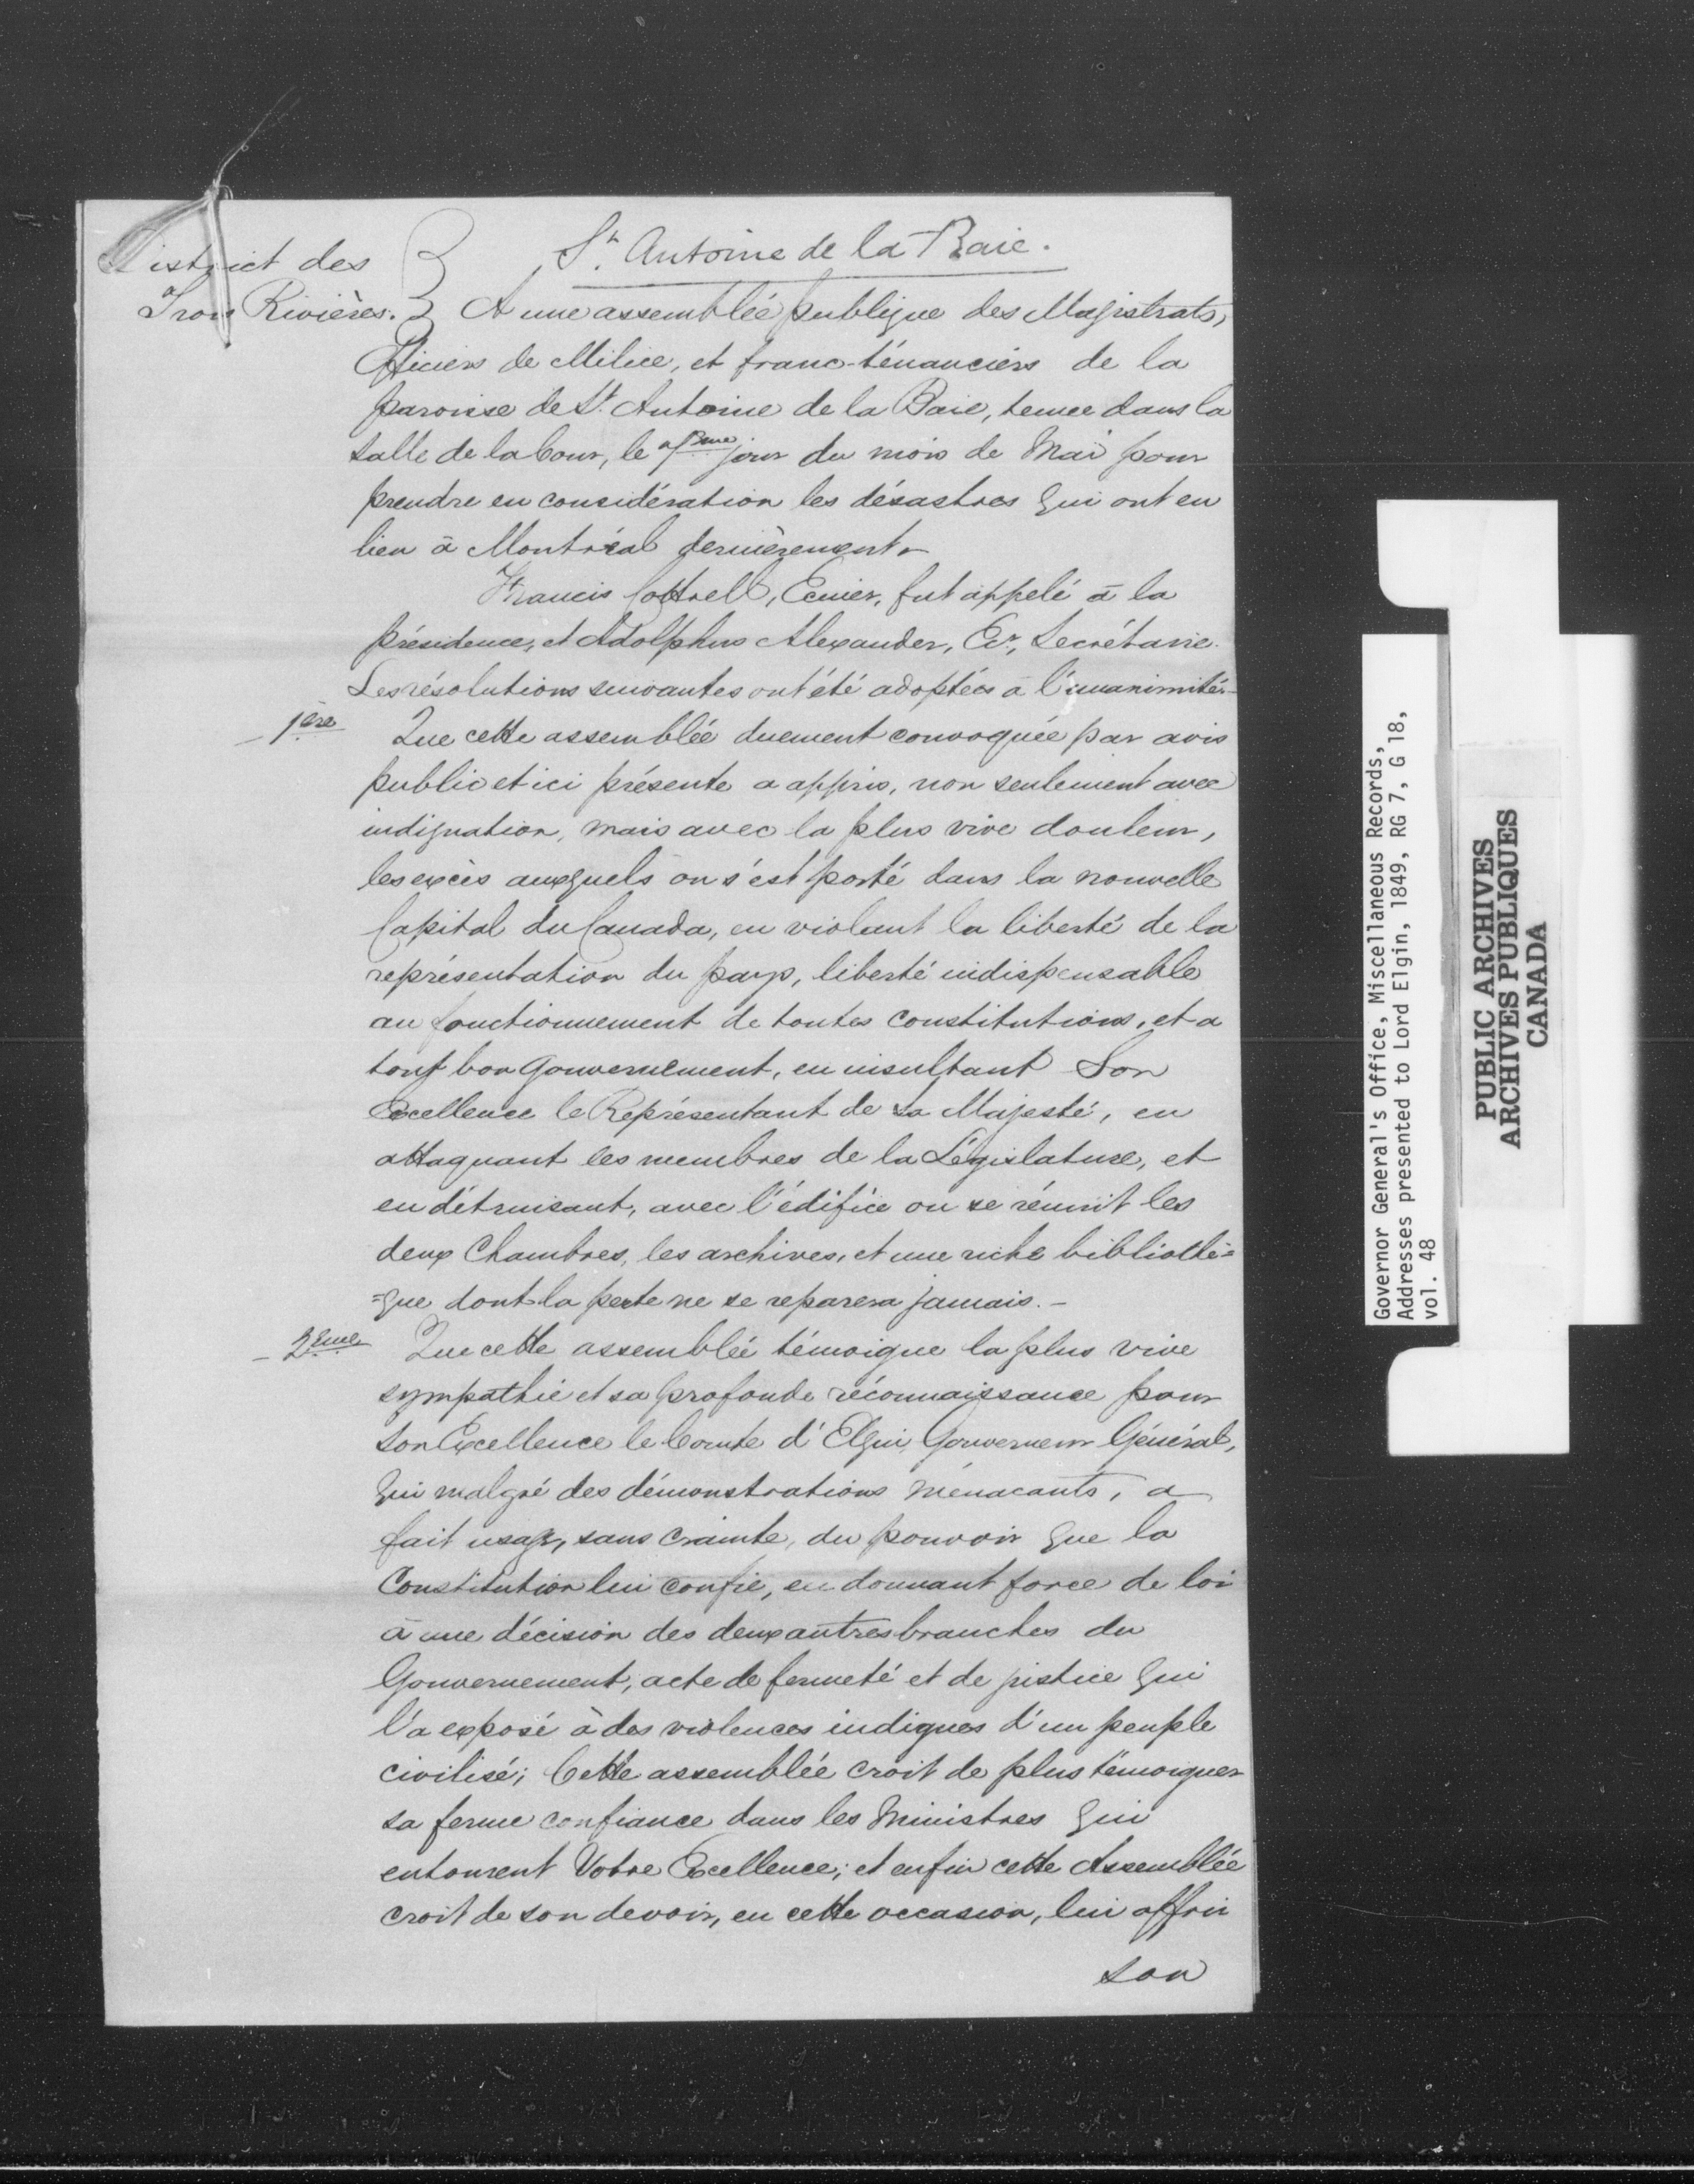 District des
Trois Rivières.
St. Antoine de la Baie.
A une assemblée publique des Magistrats,
Officiers de Milice, et franc-ténanciers de la
paroisse de St. Antoine de la Baie, tenue dans la
salle de la Cour, le 7ème jour du mois de Mai pour
prendre en considération les désastres qui ont eu
lieu à Montréal dernièrement.
Francis Cottrell, Ecuier, fut appelé à la
présidence, et Adolphus Alexander, Ecr., Secrétaire.
Les résolutions suivantes ont été adoptées à l'unanimité.
1ère Que cette assemblée duement convoquée par avis
public et ici présente a appris, non seulement avec
indignation, mais avec la plus vive douleur,
les excès auxquels on s'est porté dans la nouvelle
Capital du Canada, en violant la liberté de la
représentation du pays, liberté indispensable
au fonctionnement de toutes constitutions, et a
tout bon Gouvernement, en insultant Son
Excellence le Représentant de Sa Majesté, en
attaquant les membres de la Législature, et
en détruisant, avec l'édifice ou se réunit les
deux Chambres, les archives, et une riche bibliothè=
=que dont la perte ne se reparera jamais. -
2ème Que cette assemblée témoigne la plus vive
sympathie et sa profonde réconnaissance pour
Son Excellence le Comte d'Elgin, Gouverneur Général,
qui malgré des démonstrations ménacants, a
fait usage, sans crainte, du pouvoir que la
Constitution lui confie, en donnant force de loi
à une décision des deux autres branches du
Gouvernement, acte de fermeté et de justice qui
l'a exposé à des violences indignes d'un peuple
civilisé; Cette assemblée croit de plus témoigner
sa ferme confiance dans les Ministres qui
entourent Votre Excellence; et enfin cette Assemblée
croit de son devoir, en cette occasion, lui offrir
son
Governor General's Office, Miscellaneous Records,
Addresses presented to Lord Elgin, 1849, RG 7, G 18,
vol. 48
PUBLIC ARCHIVES
ARCHIVES PUBLIQUES
CANADA